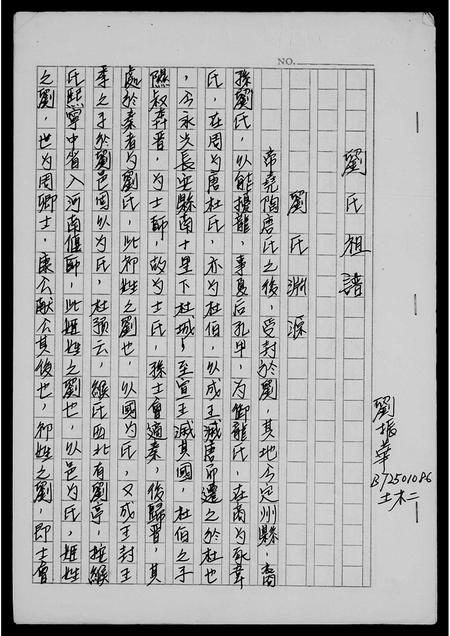 NO.
劉氏祖譜
劉振華
B72501086
土木二
劉氏淵源
帝堯陶唐氏之後，受封於劉，其地今定州縣，裔
孫劉氏，以能擾龍，事夏后孔甲，為御龍氏，在商為豕韋
氏，在周為唐杜氏，亦為杜伯，以成王滅唐而遷之於杜也
，今永興長安縣南十里下杜城，至宣王滅其國，杜伯之子
隰叔奔晋，為士師，故為士氏，孫士會適秦，後歸晋，其
處於秦者为劉氏，此祁姓之劉也，以國为氏，又成王封王
季之子於劉邑因以为氏，杜預云，緱氏西北有劉亭，按緱
氏熙寧中省入河南偃師，此姬姓之劉也，以邑为氏，姬姓
之劉，世为周卿士，康公献公其後也，祁姓之劉，即士會